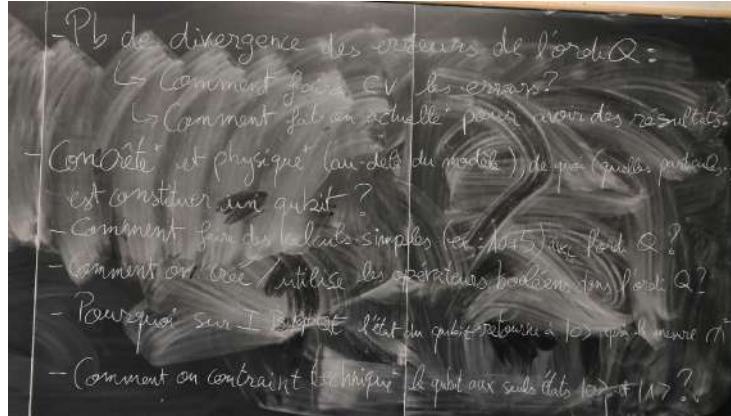 - Pb de divergence des erreurs de l'ordi Q :
↳ Comment faire CV les erreurs ?
↳ Comment fait-on actuellet pour avoir des résultats.
- Concrètet et physiquet (au-delà du modèle), de quoi (quelles particules
est constituer un qubit ?
- Comment faire des calculs simples (ex : 10+5) avec l'ordi Q ?
- Comment on crée / utilise les opérateurs booléens dans l'ordi Q ?
- Pourquoi sur I l'état du qubit retourne à |0> quand mesure
- Comment on contraint techniquet le qubit aux seuls états |0> + |1> ?